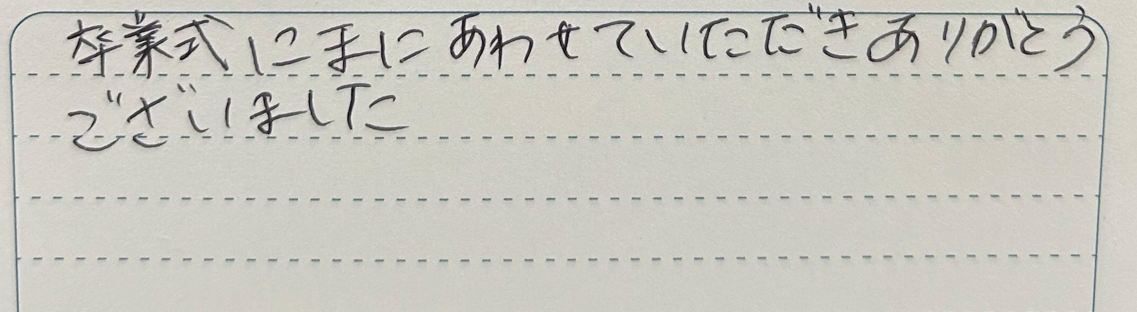 卒業式にまにあわせていただきありがとう
ございました